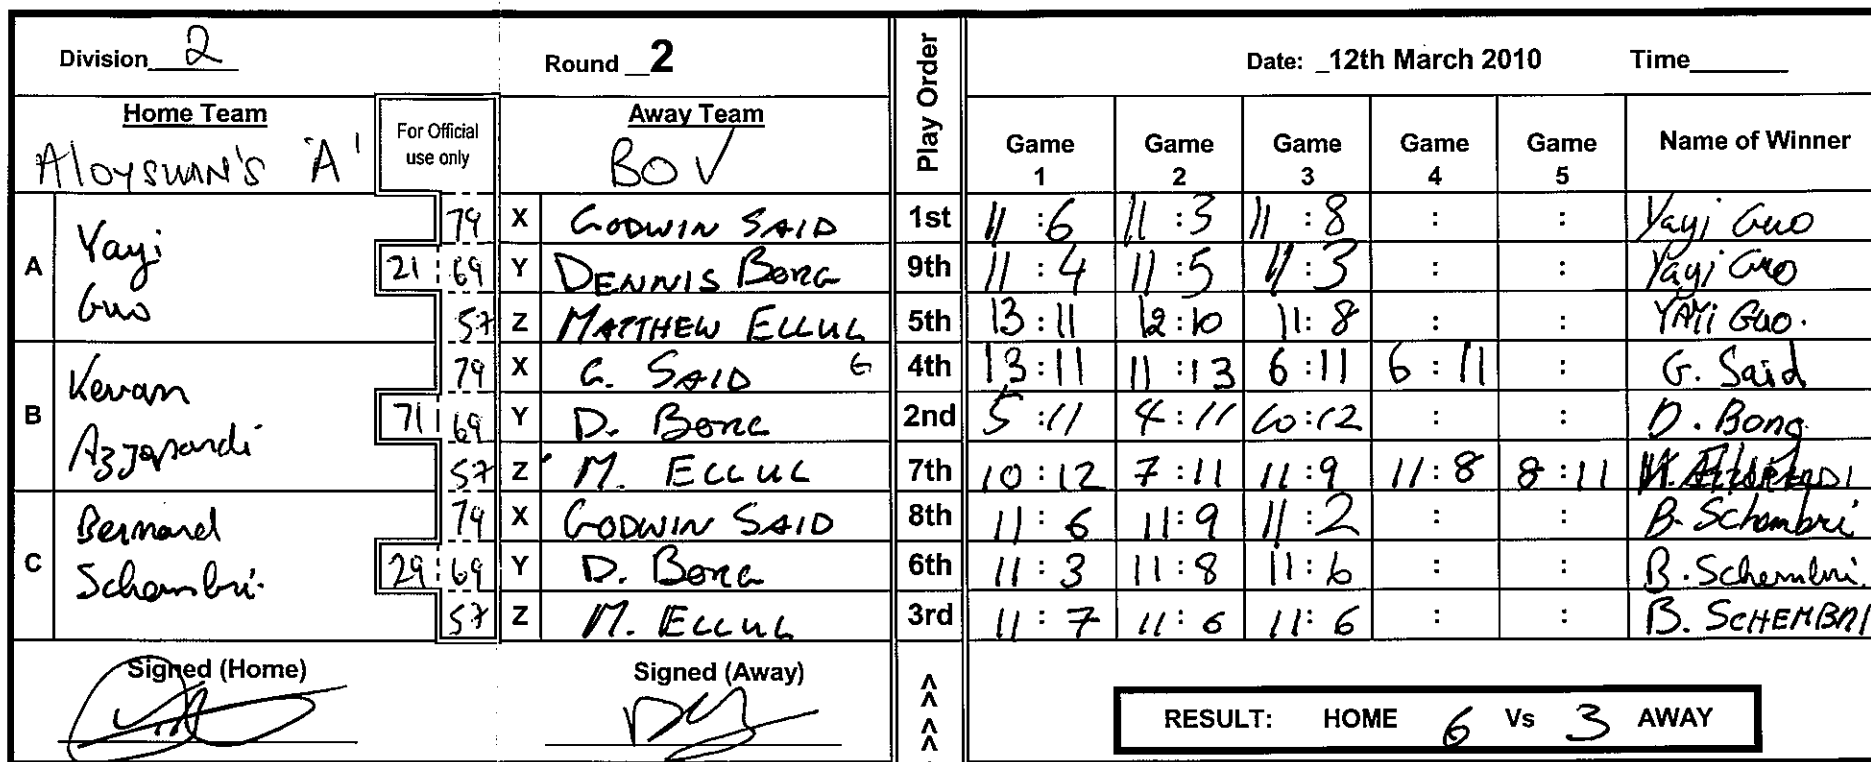 Division 2 Round 2 Play Order Date: 12th March 2010 Time
Home Team For Official use only Away Team Game 1 Game 2 Game 3 Game 4 Game 5 Name of Winner
Aloysian's 'A' BOV
A Yayi Guo 79 X GODWIN SAID 1st 11 : 6 11 : 3 11 : 8 : : Yayi Guo
21 69 Y DENNIS BORG 9th 11 : 4 11 : 5 11 : 3 : : Yayi Guo
57 Z MATTHEW ELLUL 5th 13 : 11 12 : 10 11 : 8 : : YAYi Guo.
B Kevan Azzopardi 79 X G. SAID G 4th 13 : 11 11 : 13 6 : 11 6 : 11 : G. Said
71 69 Y D. BORG 2nd 5 : 11 4 : 11 10 : 12 : : D. Borg
57 Z M. ELLUL 7th 10 : 12 7 : 11 11 : 9 11 : 8 8 : 11
C Bernard Schembri. 79 X GODWIN SAID 8th 11 : 6 11 : 9 11 : 2 : : B. Schembri
29 69 Y D. BORG 6th 11 : 3 11 : 8 11 : 6 : : B. Schembri.
57 Z M. ELLUL 3rd 11 : 7 11 : 6 11 : 6 : : B. SCHEMBRI
Signed (Home) Signed (Away) RESULT: HOME 6 Vs 3 AWAY